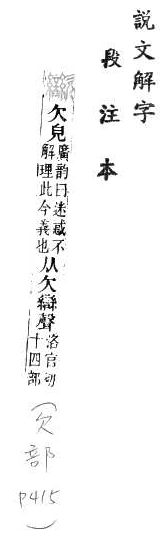 説文解字
段注本
欠皃廣韵曰迷惑不解理此今義也从欠䜌聲洛官切十四部
(欠部 P415)